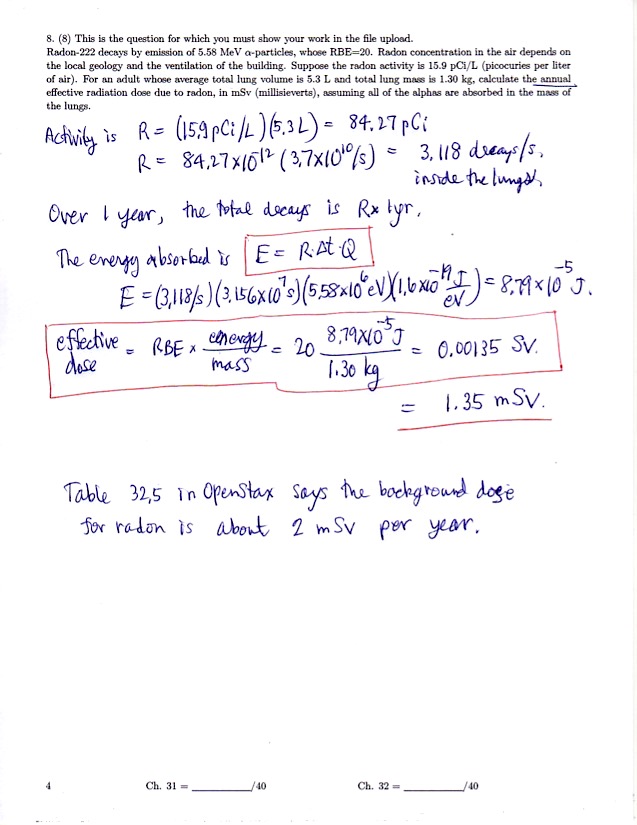 8. (8) This is the question for which you must show your work in the file upload.
Radon-222 decays by emission of 5.58 MeV α-particles, whose RBE=20. Radon concentration in the air depends on
the local geology and the ventilation of the building. Suppose the radon activity is 15.9 pCi/L (picocuries per liter
of air). For an adult whose average total lung volume is 5.3 L and total lung mass is 1.30 kg, calculate the annual
effective radiation dose due to radon, in mSv (millisieverts), assuming all of the alphas are absorbed in the mass of
the lungs.
Activity is R = (15.9 pCi/L)(5.3 L) = 84.27 pCi
R = 84.27×10⁻¹² (3.7×10¹⁰/s) = 3.118 decays/s,
inside the lungs.
Over 1 year, the total decays is R× 1yr.
The energy absorbed is E = R·Δt·Q
E = (3.118/s)(3.156×10⁷s)(5.58×10⁶eV)(1.6×10⁻¹⁹ J/eV) = 8.79×10⁻⁵ J.
effective dose = RBE × energy/mass = 20 8.79×10⁻⁵ J/1.30 kg = 0.00135 Sv.
= 1.35 mSv.
Table 32.5 in OpenStax says the background dose
for radon is about 2 mSv per year.
4 Ch. 31 = ________/40 Ch. 32 = ________/40